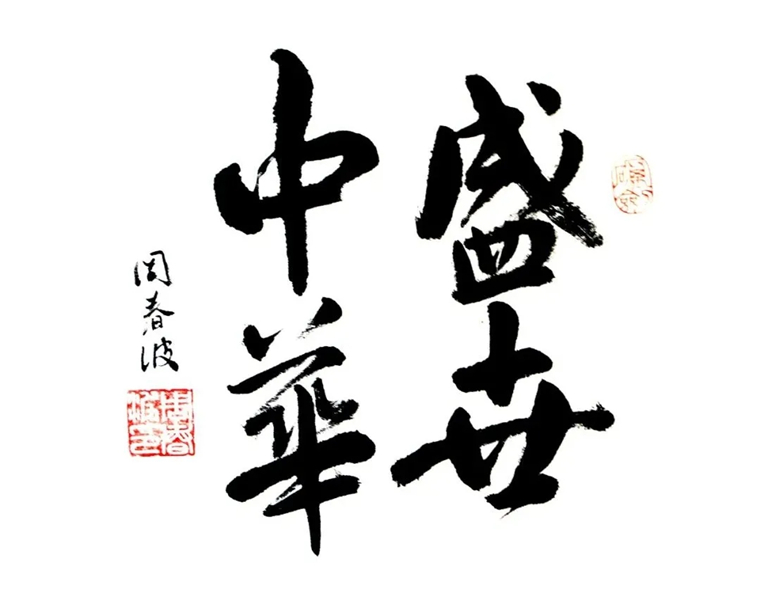 盛世
中華
周春波